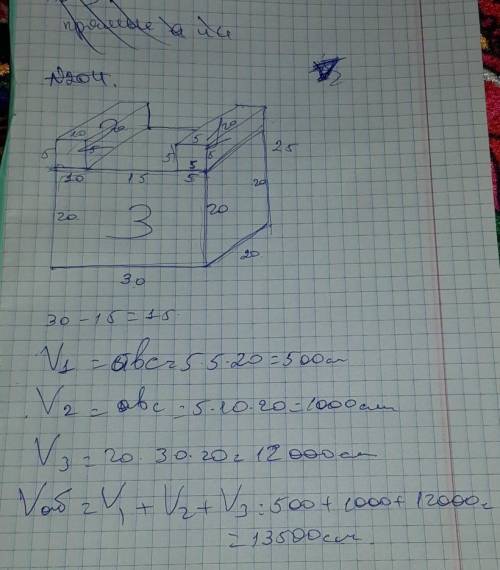 прямые а и с
N204.
10 20
20
5 5 5 5 25
5
10 15 5 20
20 3 20
20
30
30-15=15
V1 = abc=5 5·20=500см
V2 = abc=5·10·20=1000см
V3=20·30·20=12000см
Vоб=V1+V2+V3=500+1000+12000=
=13500см.